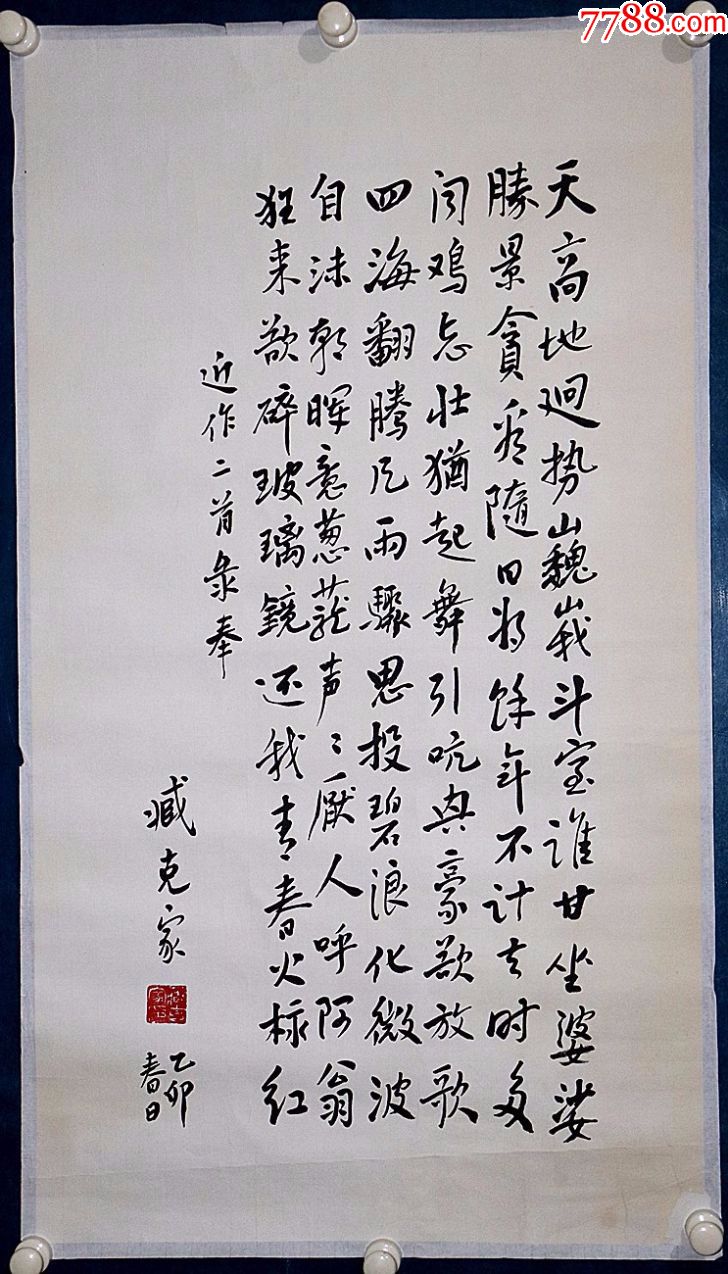 7788.com
天高地迥势巍峨斗室谁甘坐婆娑
勝景貪看隨日好馀年不计去时多
闻鸡志壮猶起舞引吭興豪欲放歌
四海翻腾风雨驟思投碧浪化微波
自沐朝晖意葱茏声〻厭人呼阿翁
狂来欲碎玻璃鏡还我青春火样红
近作二首录奉
臧克家
乙卯
春日